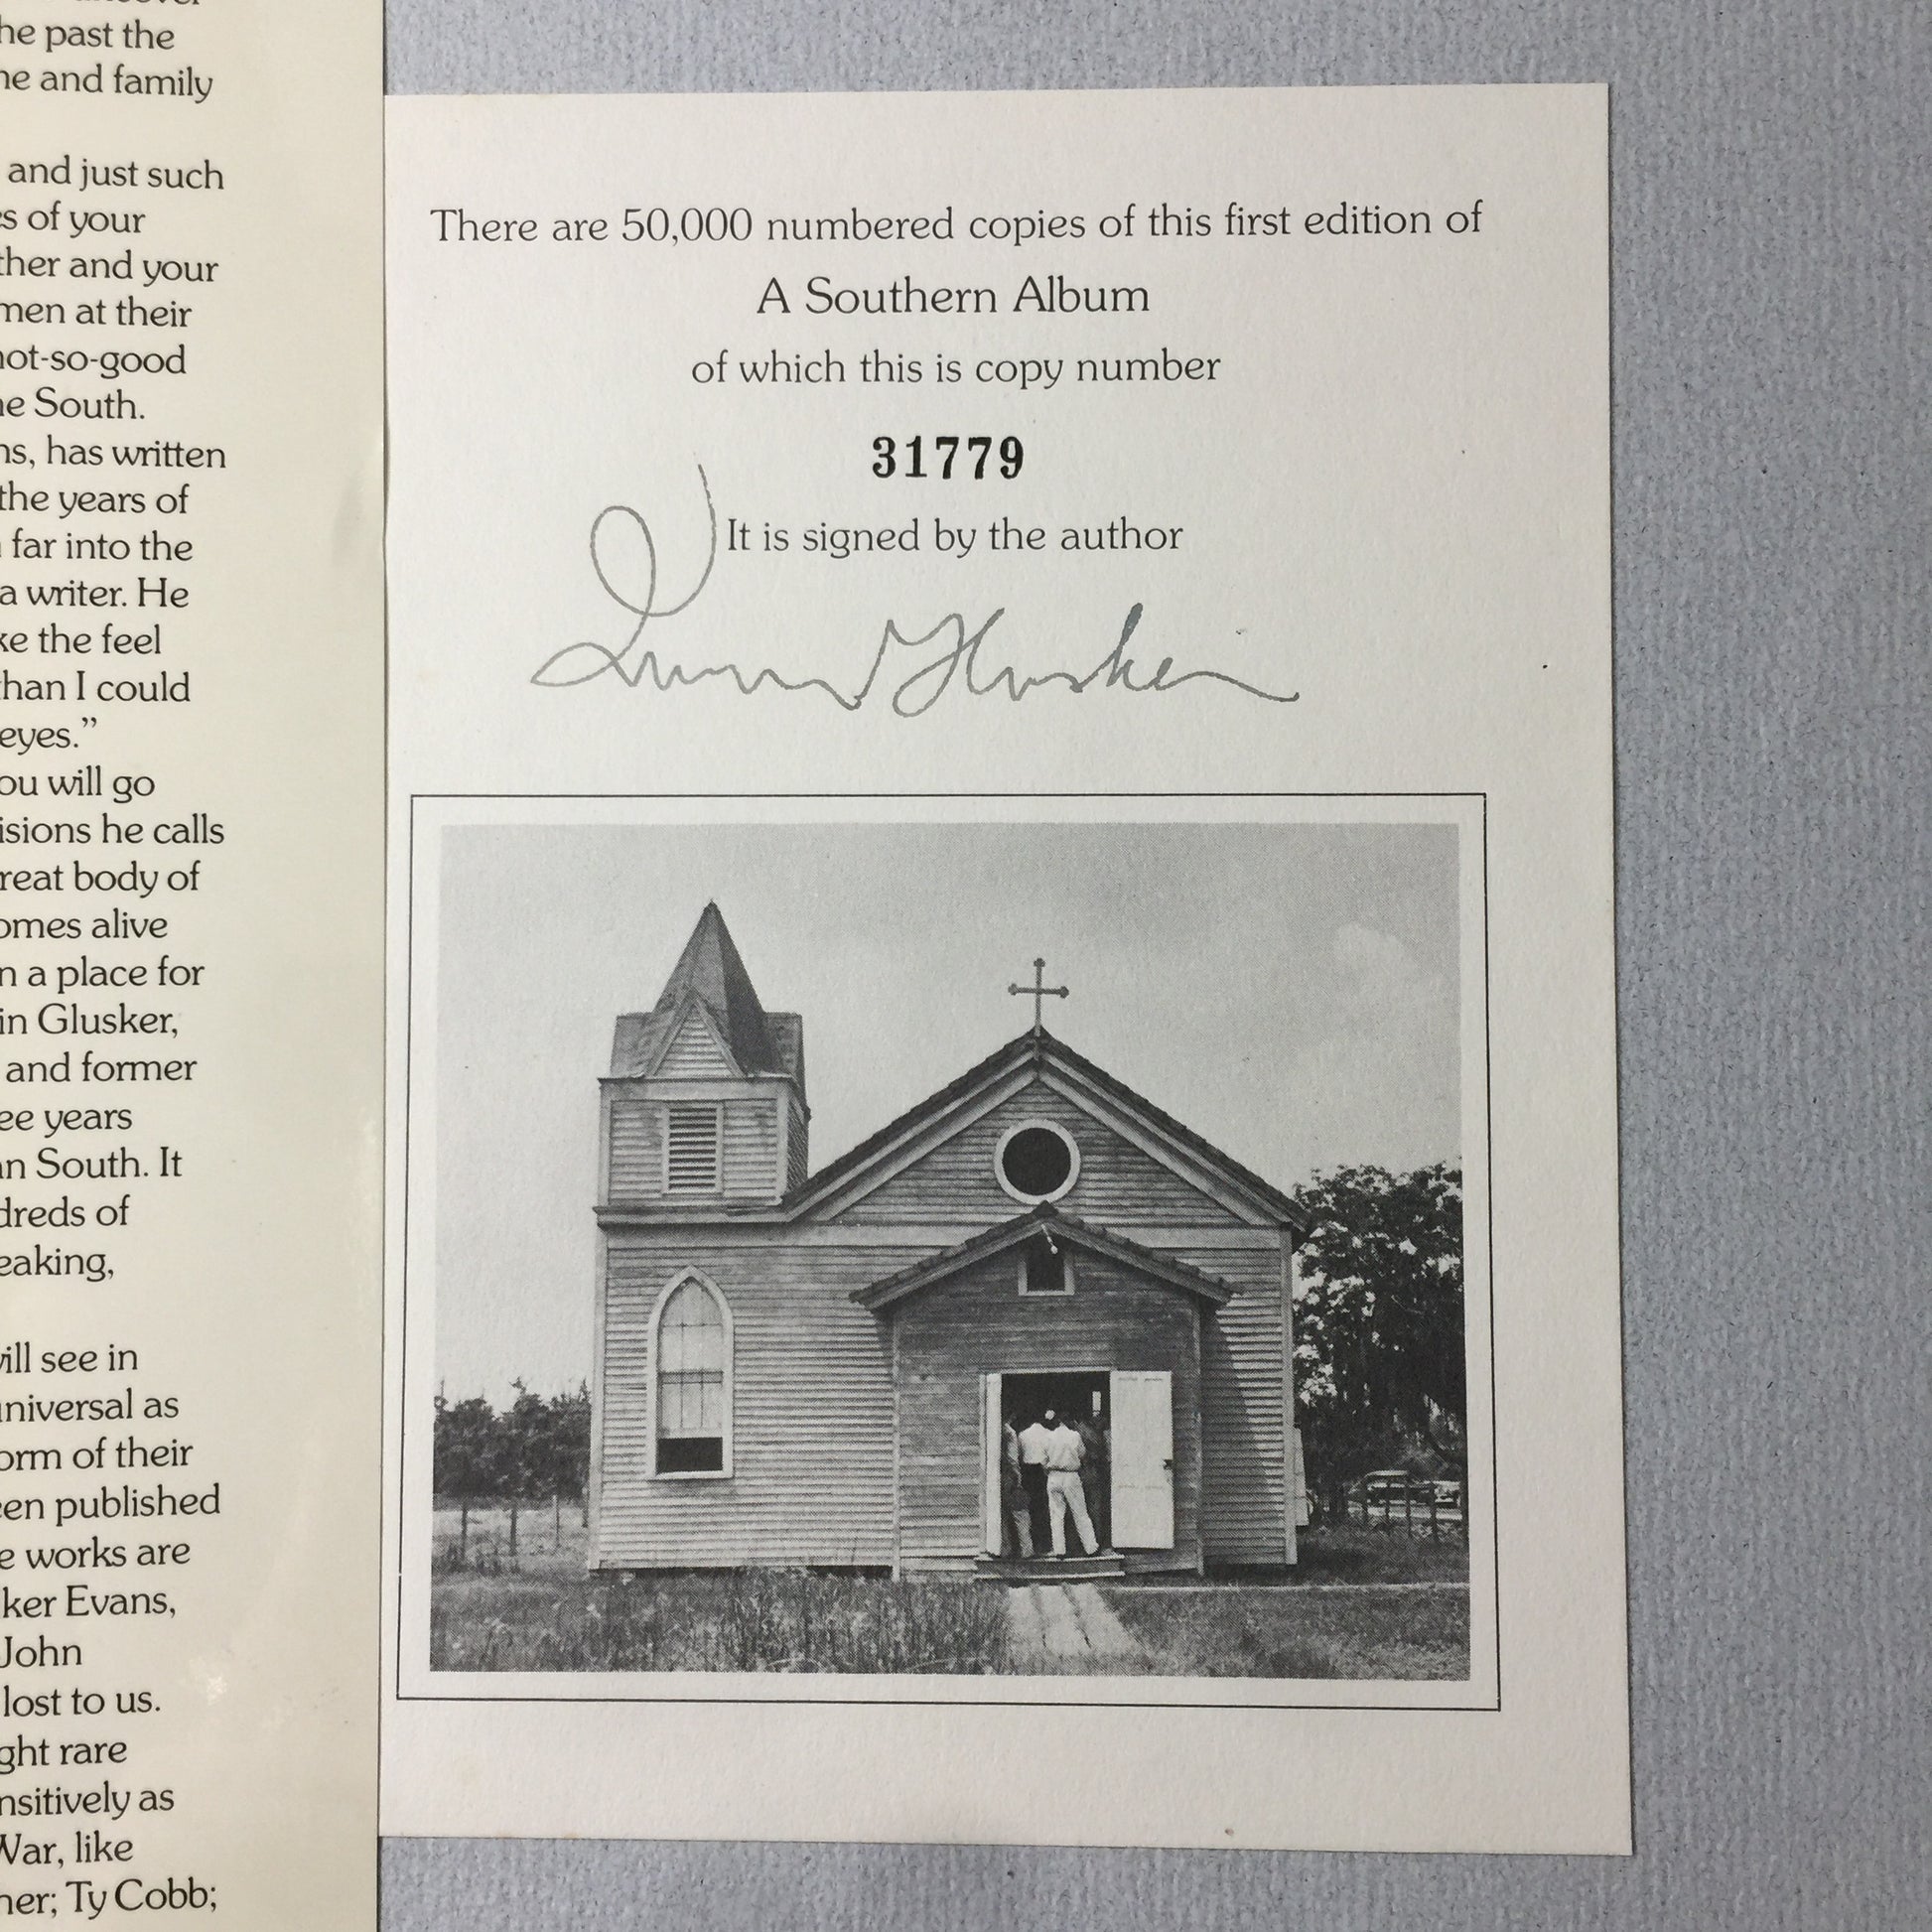 he past the
ne and family
and just such
s of your
ther and your
men at their
not-so-good
he South.
ns, has written
the years of
far into the
a writer. He
ke the feel
than I could
eyes.”
ou will go
isions he calls
reat body of
omes alive
n a place for
in Glusker,
and former
ee years
an South. It
dreds of
eaking,
will see in
universal as
orm of their
een published
e works are
ker Evans,
John
lost to us.
ght rare
nsitively as
War, like
ner; Ty Cobb;
There are 50,000 numbered copies of this first edition of
A Southern Album
of which this is copy number
31779
It is signed by the author
Irwin Glusker